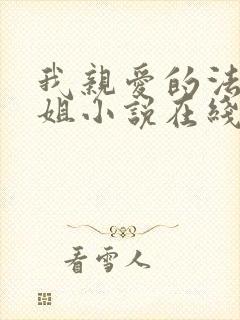 我親愛的法
姐小説在綫
看雪人